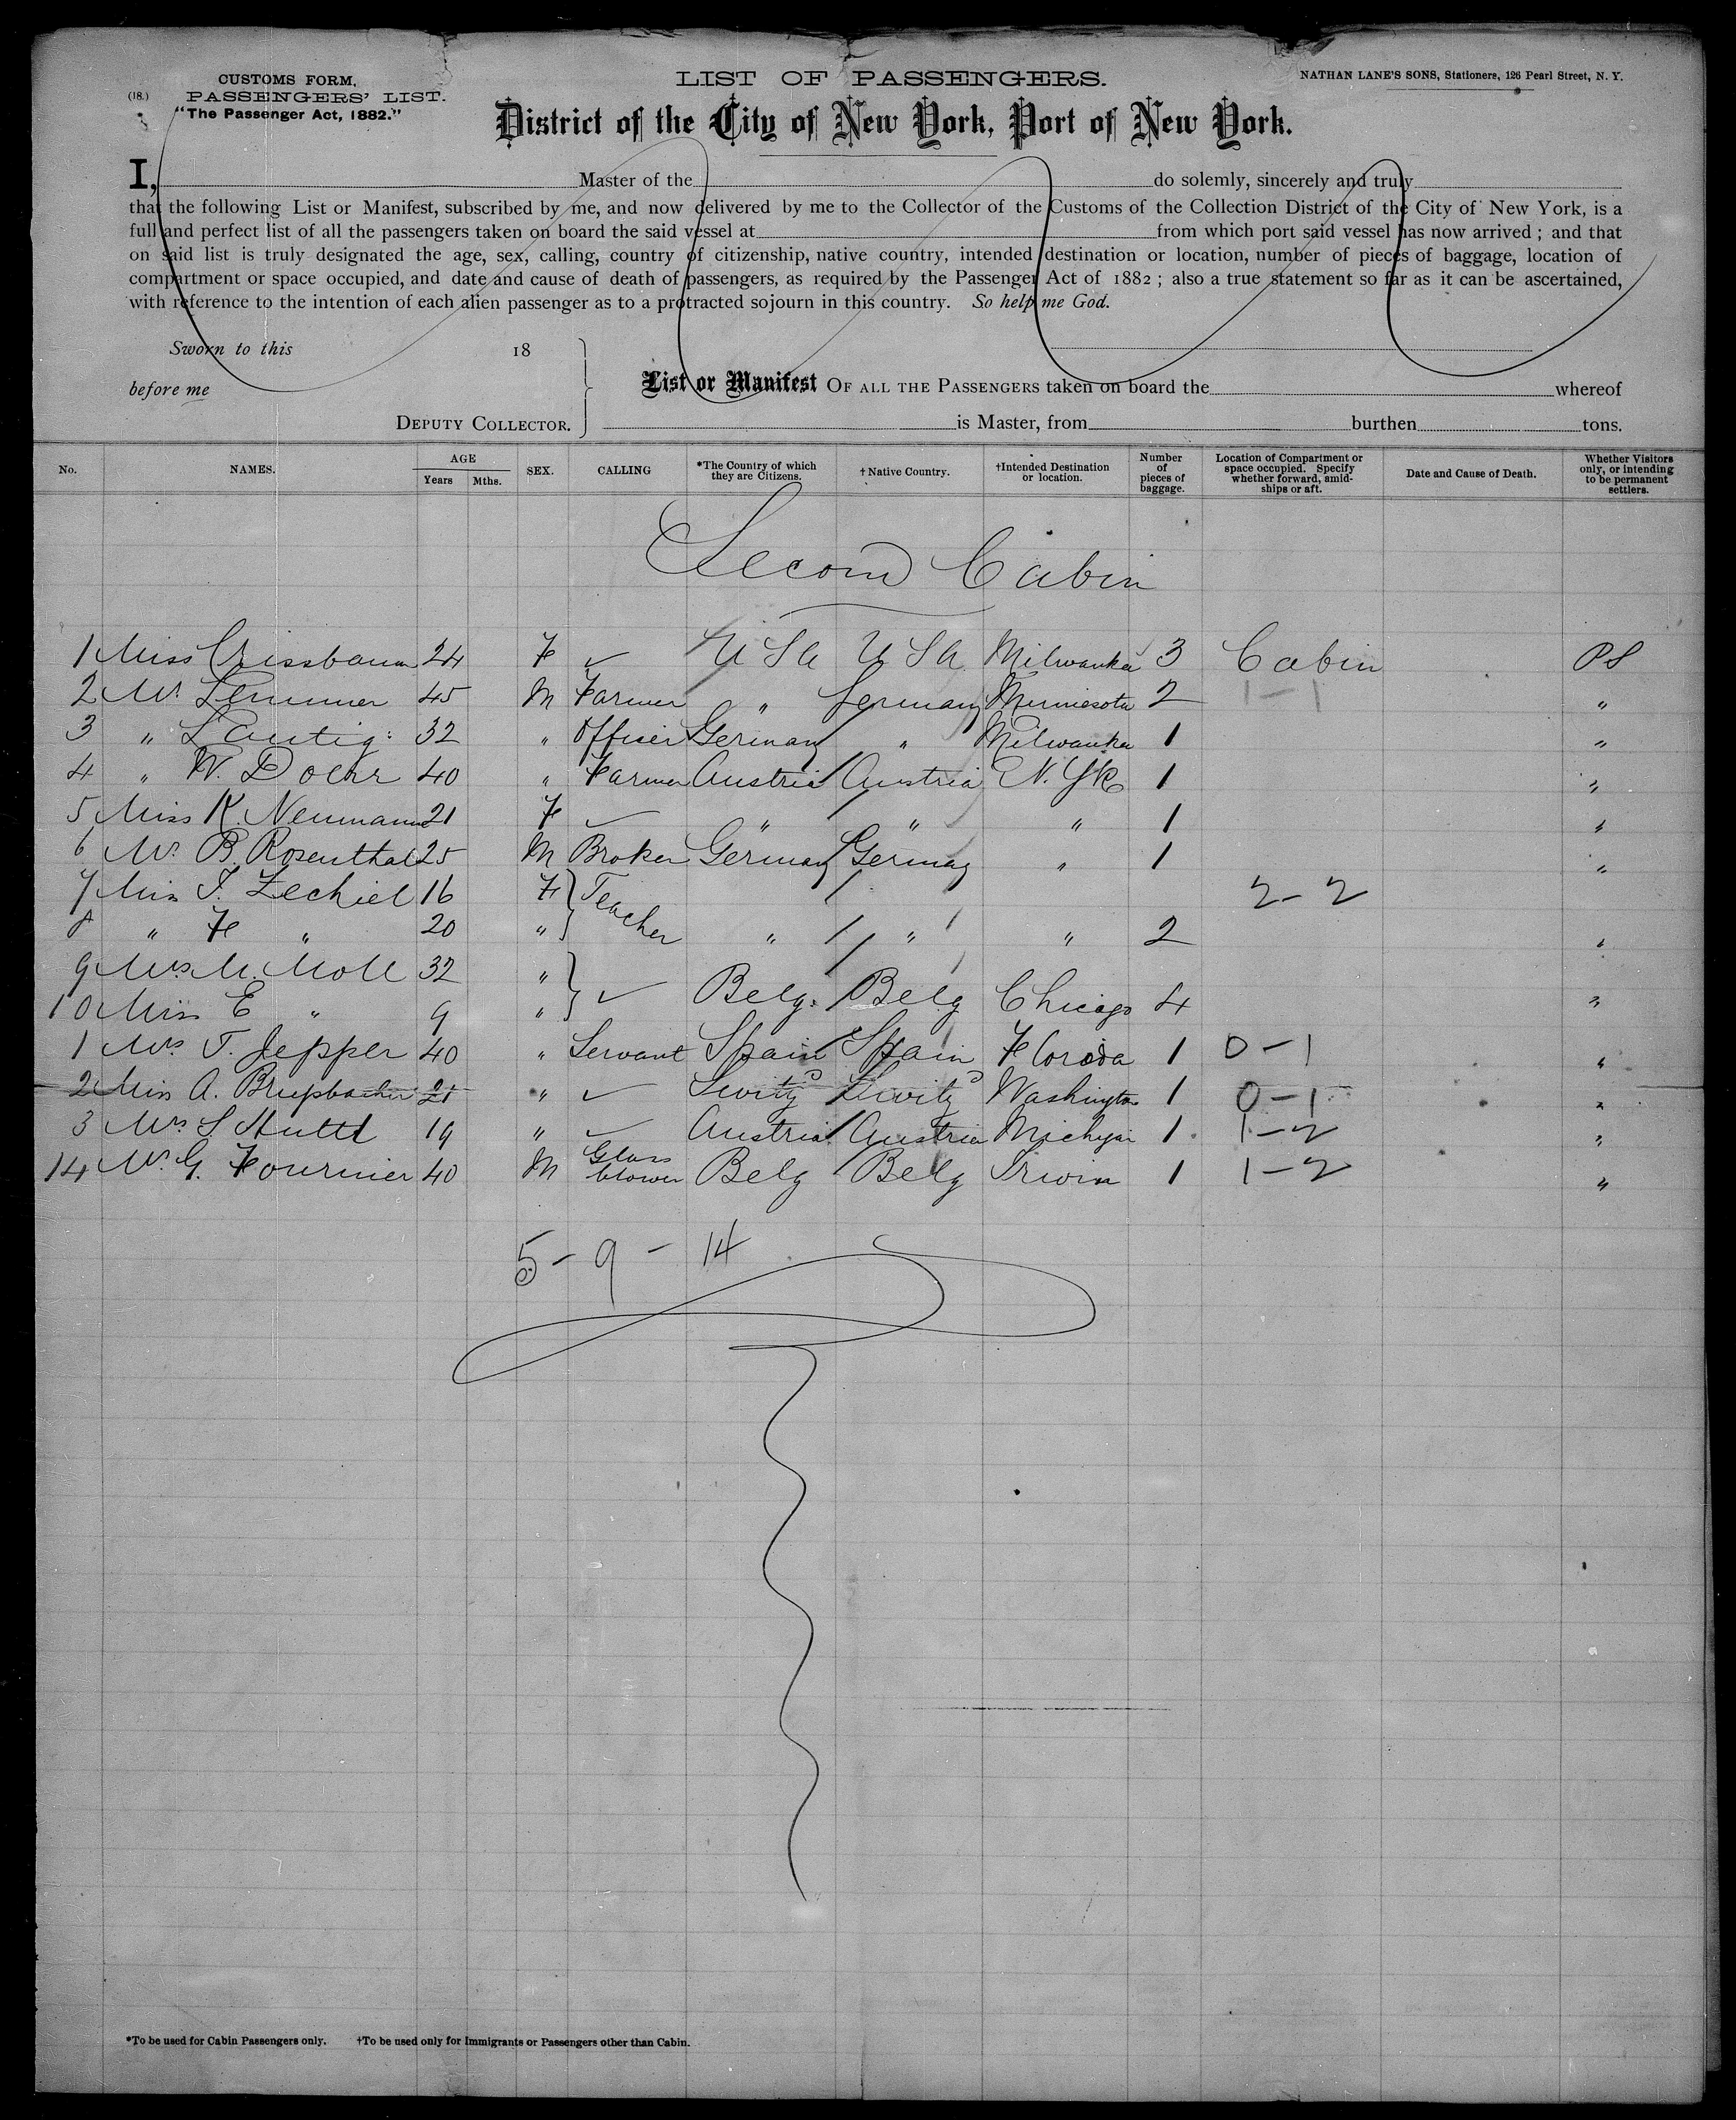 CUSTOMS FORM. LIST OF PASSENGERS. NATHAN LANE'S SONS, Stationers, 126 Pearl Street, N. Y.
(18.) PASSENGERS' LIST.
"The Passenger Act, 1882." District of the City of New York, Port of New York.
I, Master of the do solemnly, sincerely and truly
that the following List or Manifest, subscribed by me, and now delivered by me to the Collector of the Customs of the Collection District of the City of New York, is a
full and perfect list of all the passengers taken on board the said vessel at from which port said vessel has now arrived ; and that
on said list is truly designated the age, sex, calling, country of citizenship, native country, intended destination or location, number of pieces of baggage, location of
compartment or space occupied, and date and cause of death of passengers, as required by the Passenger Act of 1882 ; also a true statement so far as it can be ascertained,
with reference to the intention of each alien passenger as to a protracted sojourn in this country. So help me God.
Sworn to this 18
before me List or Manifest OF ALL THE PASSENGERS taken on board the whereof
DEPUTY COLLECTOR. is Master, from burthen tons.
No. NAMES. AGE Years Mths. SEX. CALLING *The Country of which they are Citizens. †Native Country. †Intended Destination or location. Number of pieces of baggage. Location of Compartment or space occupied. Specify whether forward, amidships or aft. Date and Cause of Death. Whether Visitors only, or intending to be permanent settlers.
Second Cabin
1 Miss 24 F ✓ U S A U S A Milwaukee 3 Cabin PS
2 Mr. Lemmer 45 M Farmer " Germany Minnesota 2 1-1 "
3 " Lantig: 32 " Officer Germany " Milwaukee 1 "
4 " W. Doehr 40 " Farmer Austria Austria N. Yk 1 "
5 Miss K. Neumann 21 F ✓ " " " 1 "
6 Mr. B. Rosenthal 25 M Broker Germany Germany " 1 "
7 Miss T. Zechiel 16 F Teacher 2-2
8 " F " 20 " " " " 2 "
9 Mrs M. Moll 32 "
10 Miss E " 9 " ✓ Belg. Belg Chicago 4 "
1 Mrs T. Jepper 40 " Servant Spain Spain Florida 1 0-1 "
2 Miss A. 21 " ✓ Switzd Switzd Washington 1 0-1 "
3 Mrs S. Huttl 19 " ✓ Austria Austria Michigan 1 1-2 "
14 Mr. G. Fournier 40 M Glass blower Belg Belg Irwin 1 1-2 "
5 - 9 - 14
*To be used for Cabin Passengers only. †To be used only for Immigrants or Passengers other than Cabin.